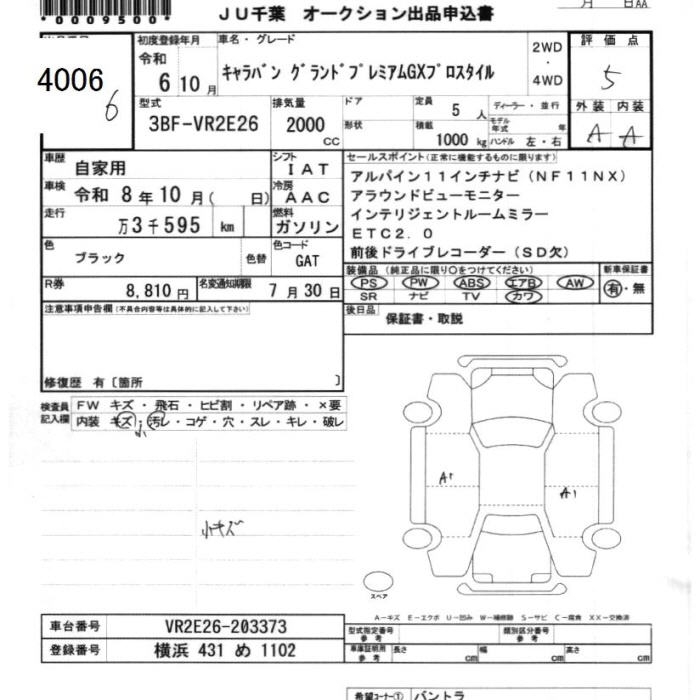 *0009500*
JU千葉 オークション出品申込書
月 日AA
4006
6
初度登録年月
令和
6年10月
車名・グレード
キャラバン グランドプレミアムGXプロスタイル
2WD
・
4WD
評価点
5
外装 内装
A A
型式
3BF-VR2E26
排気量
2000
CC
ドア
形状
定員 5 人
積載 1000 kg
ディーラー・並行
モデル年式 年
ハンドル 左・右
車歴 自家用
シフト IAT
車検 令和 8年10月( 日)
冷房 AAC
走行 万3千595 km
燃料 ガソリン
色 ブラック
色替
色コード GAT
R券 8,810円
名変通知期限 7月30日
セールスポイント(正常に機能するものに限ります)
アルパイン11インチナビ(NF11NX)
アラウンドビューモニター
インテリジェントルームミラー
ETC2.0
前後ドライブレコーダー(SD欠)
装備品(純正品に限り○をつけてください)
新車保証書
PS PW ABS エアB AW
有・無
SR ナビ TV カワ
後日品 保証書・取説
注意事項申告欄(不具合内容等は具体的に記入して下さい)
修復歴 有〔箇所 〕
検査員記入欄
FW キズ・飛石・ヒビ割・リペア跡・×要
内装 キズ・汚レ・コゲ・穴・スレ・キレ・破レ
小
小キズ
A1
A1
スペア
A-キズ E-エクボ U-凹み W-補修跡 S-サビ C-腐食 XX-交換済
車台番号 VR2E26-203373
登録番号 横浜 431 め 1102
型式指定番号 参考
類別区分番号 参考
車庫証明用 参考
長さ cm
幅 cm
高さ cm
希望コーナー① バントラ